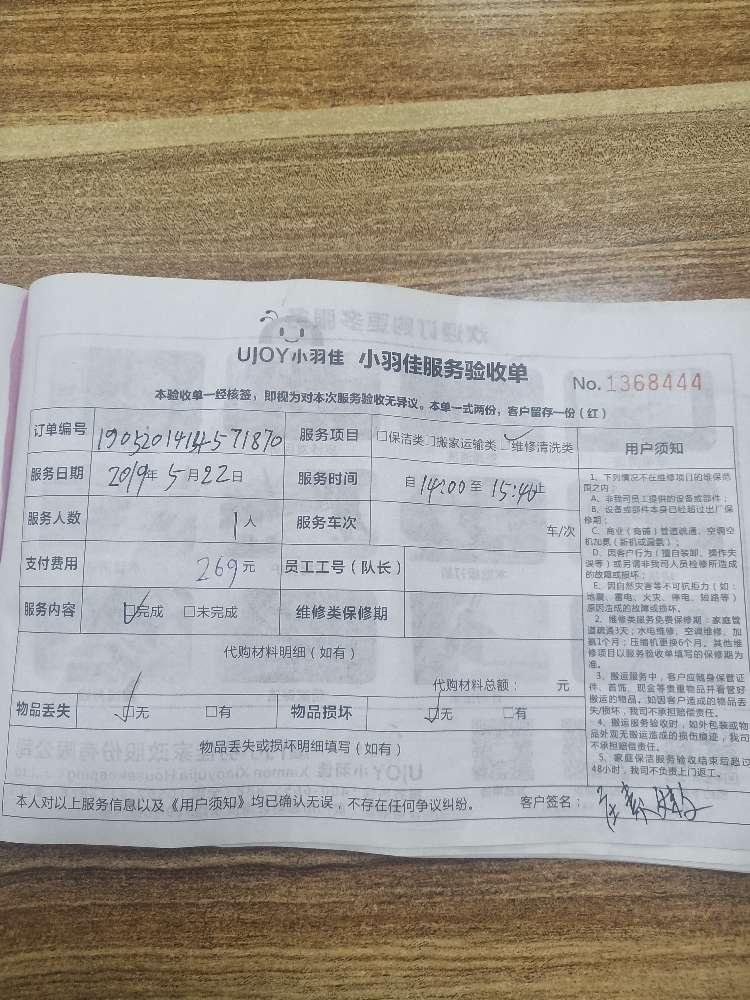 欢迎订购更多服务
UJOY小羽佳 小羽佳服务验收单
No. 1368444
本验收单一经核签，即视为对本次服务验收无异议。本单一式两份，客户留存一份（红）
订单编号 服务项目 □保洁类 □搬家运输类 □维修清洗类
服务日期 2019年5月22日 服务时间 自14:00至15:40止
服务人数 1人 服务车次 车/次
支付费用 269元 员工工号（队长）
服务内容 □完成 □未完成 维修类保修期
代购材料明细（如有）
代购材料总额： 元
物品丢失 □无 □有 物品损坏 □无 □有
物品丢失或损坏明细填写（如有）
本人对以上服务信息以及《用户须知》均已确认无误，不存在任何争议纠纷。 客户签名：
用户须知
1、下列情况不在维修项目的维保范
围之内：
A、非我司员工提供的设备或部件；
B、设备或部件本身已经超过出厂保
修期；
C、商业（商铺）管道疏通、空调空
机加氟（新机或漏氟）；
D、因客户行为（擅自装卸、操作失
误等）或另请非我司人员检修所造成
的故障或损坏；
E、因自然灾害等不可抗拒力（如：
地震、雷电、火灾、停电、短路等）
原因造成的故障或损坏。
2、维修类服务免费保修期：家庭管
道疏通3天；水电维修、空调维修、加
氟1个月；压缩机更换6个月。其他维
修项目以服务验收单填写的保修期为
准。
3、搬运服务中，客户应随身保管证
件、首饰、现金等贵重物品并看管好
搬运的物品。如因客户造成的物品丢
失/损坏，我司不承担赔偿责任。
4、搬运服务验收时，如外包装或物
品外观无搬运造成的损伤痕迹，我司
不承担赔偿责任。
5、家庭保洁服务验收结束后超过
48小时，我司不负责上门返工。